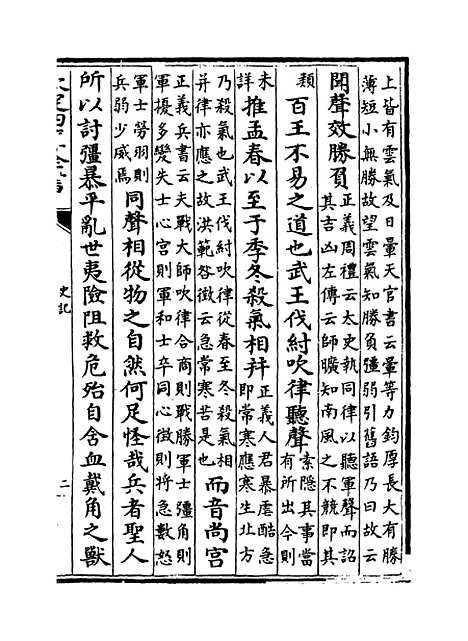 上皆有雲氣及日暈天官書云暈等力鈞厚長大有勝
薄短小無勝故望雲氣知勝負彊弱引舊語乃曰故云
聞聲效勝負
正義周禮云太史執同律以聽軍聲而詔
其吉凶左傳云師曠知南風之不競即其
類
百王不易之道也武王伐紂吹律聽聲
索隱其事當
有所出今則
未詳
推孟春以至于季冬殺氣相并
正義人君暴虐酷急
即常寒應寒生北方
乃殺氣也武王伐紂吹律從春至冬殺氣相
并律亦應之故洪範咎徵云急常寒若是也
而音尚宮
正義兵書云夫戰大師吹律合商則戰勝軍士彊角則
軍擾多變失士心宮則軍和士卒同心徵則將急數怒
軍士勞羽則
兵弱少威焉
同聲相從物之自然何足怪哉兵者聖人
所以討彊暴平亂世夷險阻救危殆自含血戴角之獸
史記
二